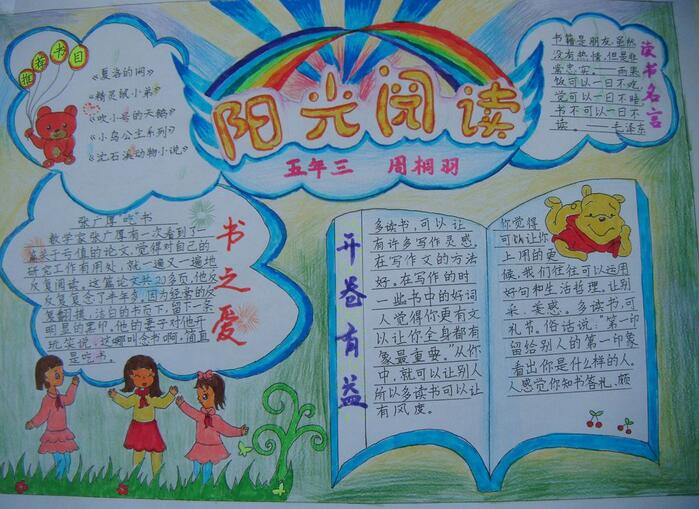 推荐书目
《夏洛的网》
《精灵鼠小弟》
《吹小号的天鹅》
《小鸟公主系列》
《沈石溪动物小说》
阳光阅读
五年三 周桐羽
书籍是朋友,虽然
没有热情,但是非
常忠实。——雨果
饭可以一日不吃,
觉可以一日不睡,
书不可以一日不
读。——毛泽东
读书名言
张广厚"吃"书
数学家张广厚有一次看到了一
篇关于亏值的论文,觉得对自己的
研究工作有用处,就一遍又一遍地
反复阅读。这篇论文共20多页,他反
反复复念了半年多,因为经常的反
复翻摸,洁白的书页下,留下一条
明显的黑印,他的妻子对他开
玩笑说:这哪叫念书啊,简直
是吃书。
书之爱
开卷有益
多读书,可以让
有许多写作灵感,
在写作文的方法
好。在写作的时
一些书中的好词
人觉得你更有文
以让你全身都有
象最重要。"从你
中,就可以让别人
所以多读书可以让
有风度。
你觉得
可以让你
上用的更
候,我们往往可以运用
好句和生活哲理,让别
采、美感。多读书,可
礼节。俗话说:"第一印
留给别人的第一印象
看出你是什么样的人。
人感觉你知书答礼,颇